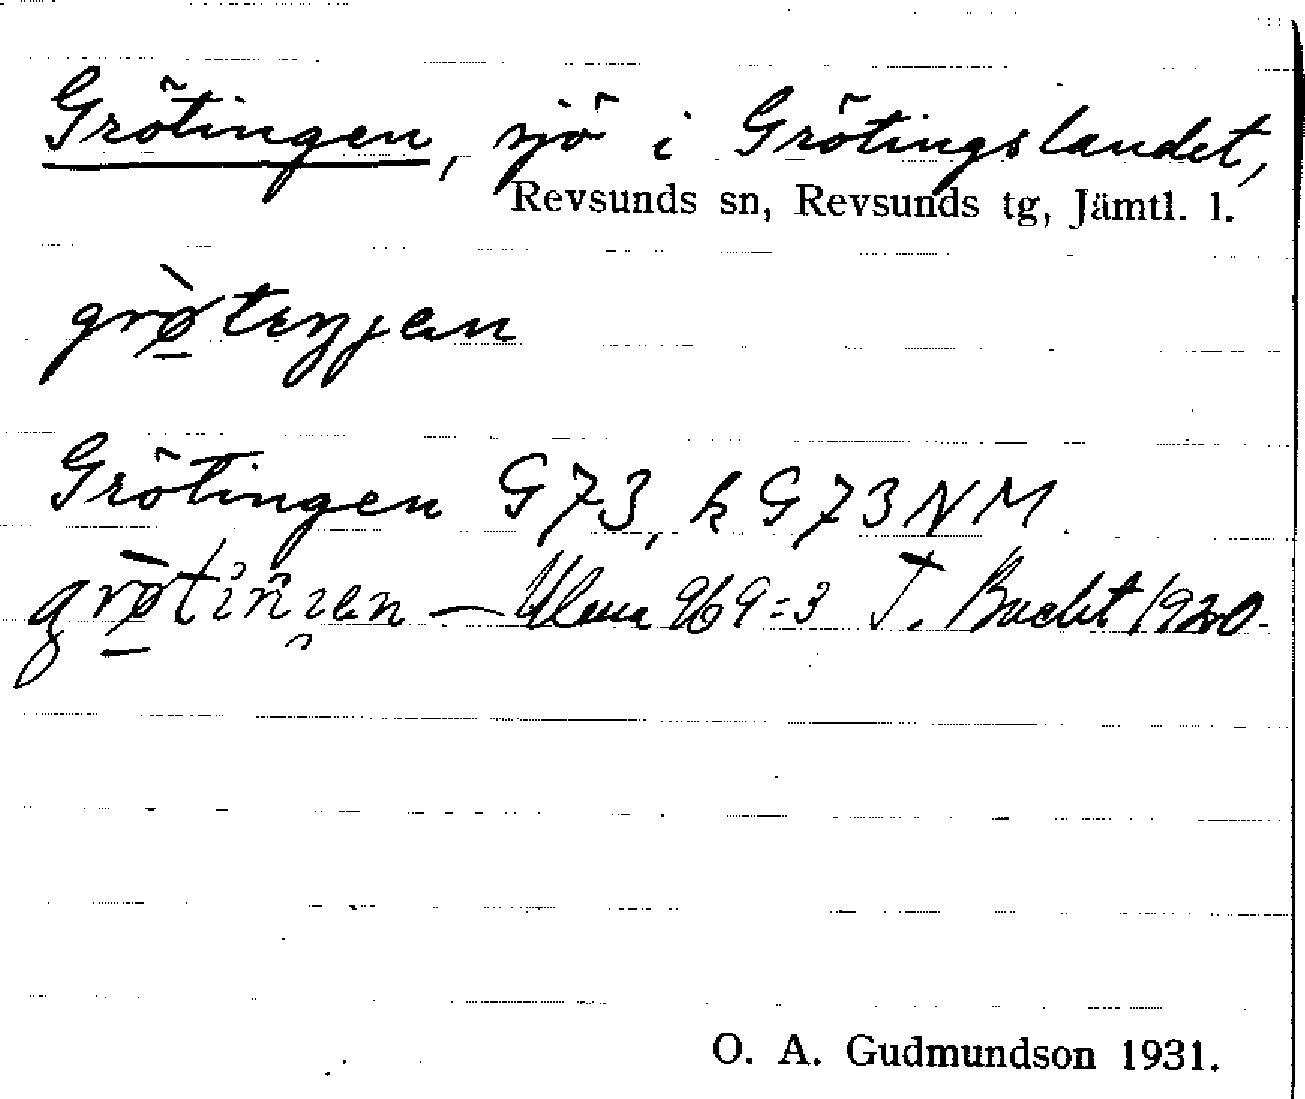 Grötingen, sjö i Grötingslandet,
Revsunds sn, Revsunds tg, Jämtl. l.
grø̀teŋjen
Grötingen G73, k G73NM.
grø̀tiŋ̃ıen — Ulma 969:3 T. Bucht 1920.
O. A. Gudmundson 1931.